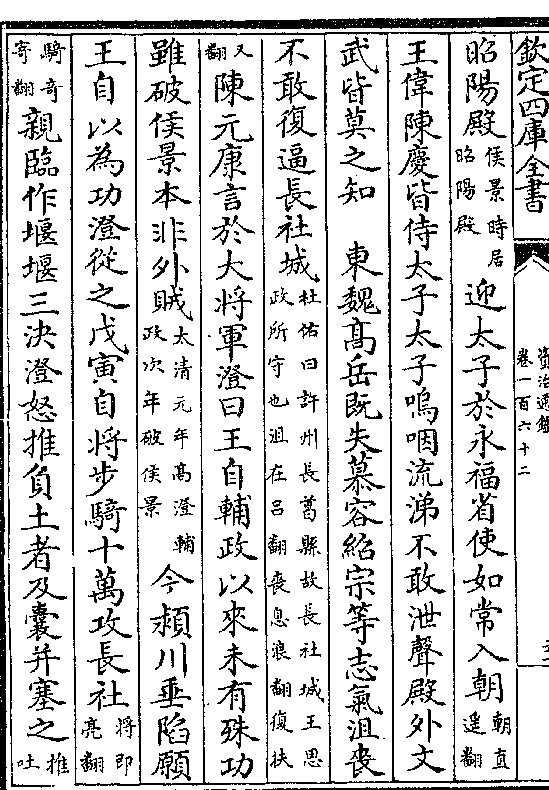 欽定四庫全書
資治通鑑
卷一百六十二
昭陽殿侯景時居昭陽殿迎太子於永福省使如常入朝朝直遥翻
王偉陳慶皆侍太子太子嗚咽流涕不敢泄聲殿外文
武皆莫之知　東魏髙岳既失慕容紹宗等志氣沮喪
不敢復逼長社城杜佑曰許州長葛縣故長社城王思政所守也沮在吕翻喪息浪翻復扶
又翻陳元康言於大將軍澄曰王自輔政以來未有殊功
雖破侯景本非外賊太清元年髙澄輔政次年破侯景今潁川垂陷願
王自以為功澄從之戊寅自將步騎十萬攻長社將即亮翻
騎奇寄翻親臨作堰堰三決澄怒推負土者及囊并塞之推吐